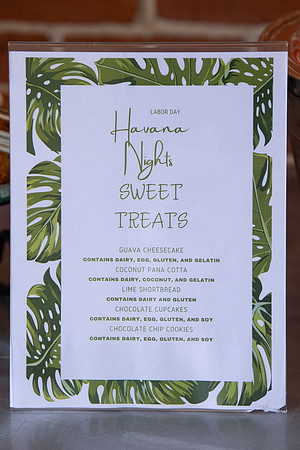 LABOR DAY
Havana
Nights
SWEET
TREATS
GUAVA CHEESECAKE
CONTAINS DAIRY, EGG, GLUTEN, AND GELATIN
COCONUT PANA COTTA
CONTAINS DAIRY, COCONUT, AND GELATIN
LIME SHORTBREAD
CONTAINS DAIRY AND GLUTEN
CHOCOLATE CUPCAKES
CONTAINS DAIRY, EGG, GLUTEN, AND SOY
CHOCOLATE CHIP COOKIES
CONTAINS DAIRY, EGG, GLUTEN, AND SOY